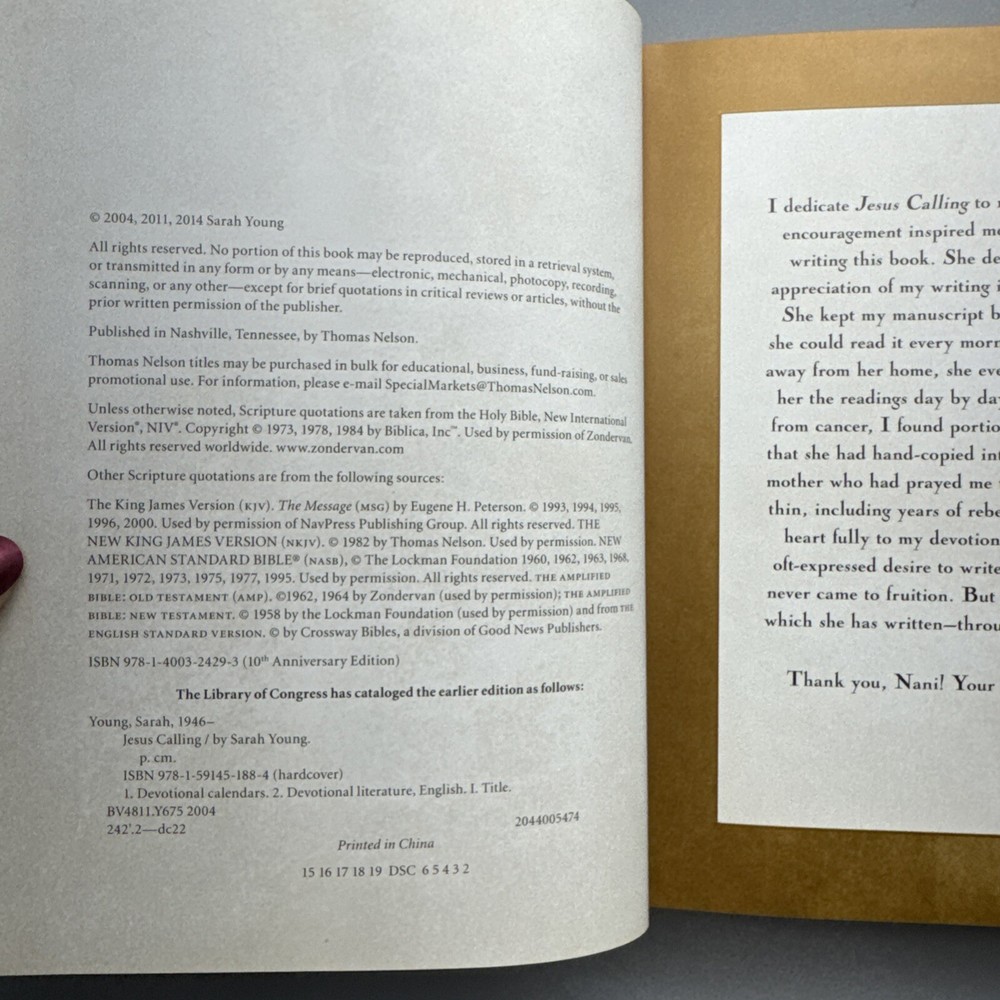 © 2004, 2011, 2014 Sarah Young
All rights reserved. No portion of this book may be reproduced, stored in a retrieval system,
or transmitted in any form or by any means—electronic, mechanical, photocopy, recording,
scanning, or any other—except for brief quotations in critical reviews or articles, without the
prior written permission of the publisher.
Published in Nashville, Tennessee, by Thomas Nelson.
Thomas Nelson titles may be purchased in bulk for educational, business, fund-raising, or sales
promotional use. For information, please e-mail SpecialMarkets@ThomasNelson.com.
Unless otherwise noted, Scripture quotations are taken from the Holy Bible, New International
Version®, NIV®. Copyright © 1973, 1978, 1984 by Biblica, Inc™. Used by permission of Zondervan.
All rights reserved worldwide. www.zondervan.com
Other Scripture quotations are from the following sources:
The King James Version (KJV). The Message (MSG) by Eugene H. Peterson. © 1993, 1994, 1995,
1996, 2000. Used by permission of NavPress Publishing Group. All rights reserved. THE
NEW KING JAMES VERSION (NKJV). © 1982 by Thomas Nelson. Used by permission. NEW
AMERICAN STANDARD BIBLE® (NASB), © The Lockman Foundation 1960, 1962, 1963, 1968,
1971, 1972, 1973, 1975, 1977, 1995. Used by permission. All rights reserved. THE AMPLIFIED
BIBLE: OLD TESTAMENT (AMP). ©1962, 1964 by Zondervan (used by permission); THE AMPLIFIED
BIBLE: NEW TESTAMENT. © 1958 by the Lockman Foundation (used by permission) and from THE
ENGLISH STANDARD VERSION. © by Crossway Bibles, a division of Good News Publishers.
ISBN 978-1-4003-2429-3 (10th Anniversary Edition)
The Library of Congress has cataloged the earlier edition as follows:
Young, Sarah, 1946–
Jesus Calling / by Sarah Young.
p. cm.
ISBN 978-1-59145-188-4 (hardcover)
1. Devotional calendars. 2. Devotional literature, English. I. Title.
BV4811.Y675 2004
242'.2—dc22
2044005474
Printed in China
15 16 17 18 19 DSC 6 5 4 3 2
I dedicate Jesus Calling to
encouragement inspired
writing this book. She
appreciation of my writing
She kept my manuscript
she could read it every
away from her home, she
her the readings day by
from cancer, I found
that she had hand-copied
mother who had prayed me
thin, including years of
heart fully to my
oft-expressed desire to write
never came to fruition. But
which she has written—
Thank you, Nani! Your